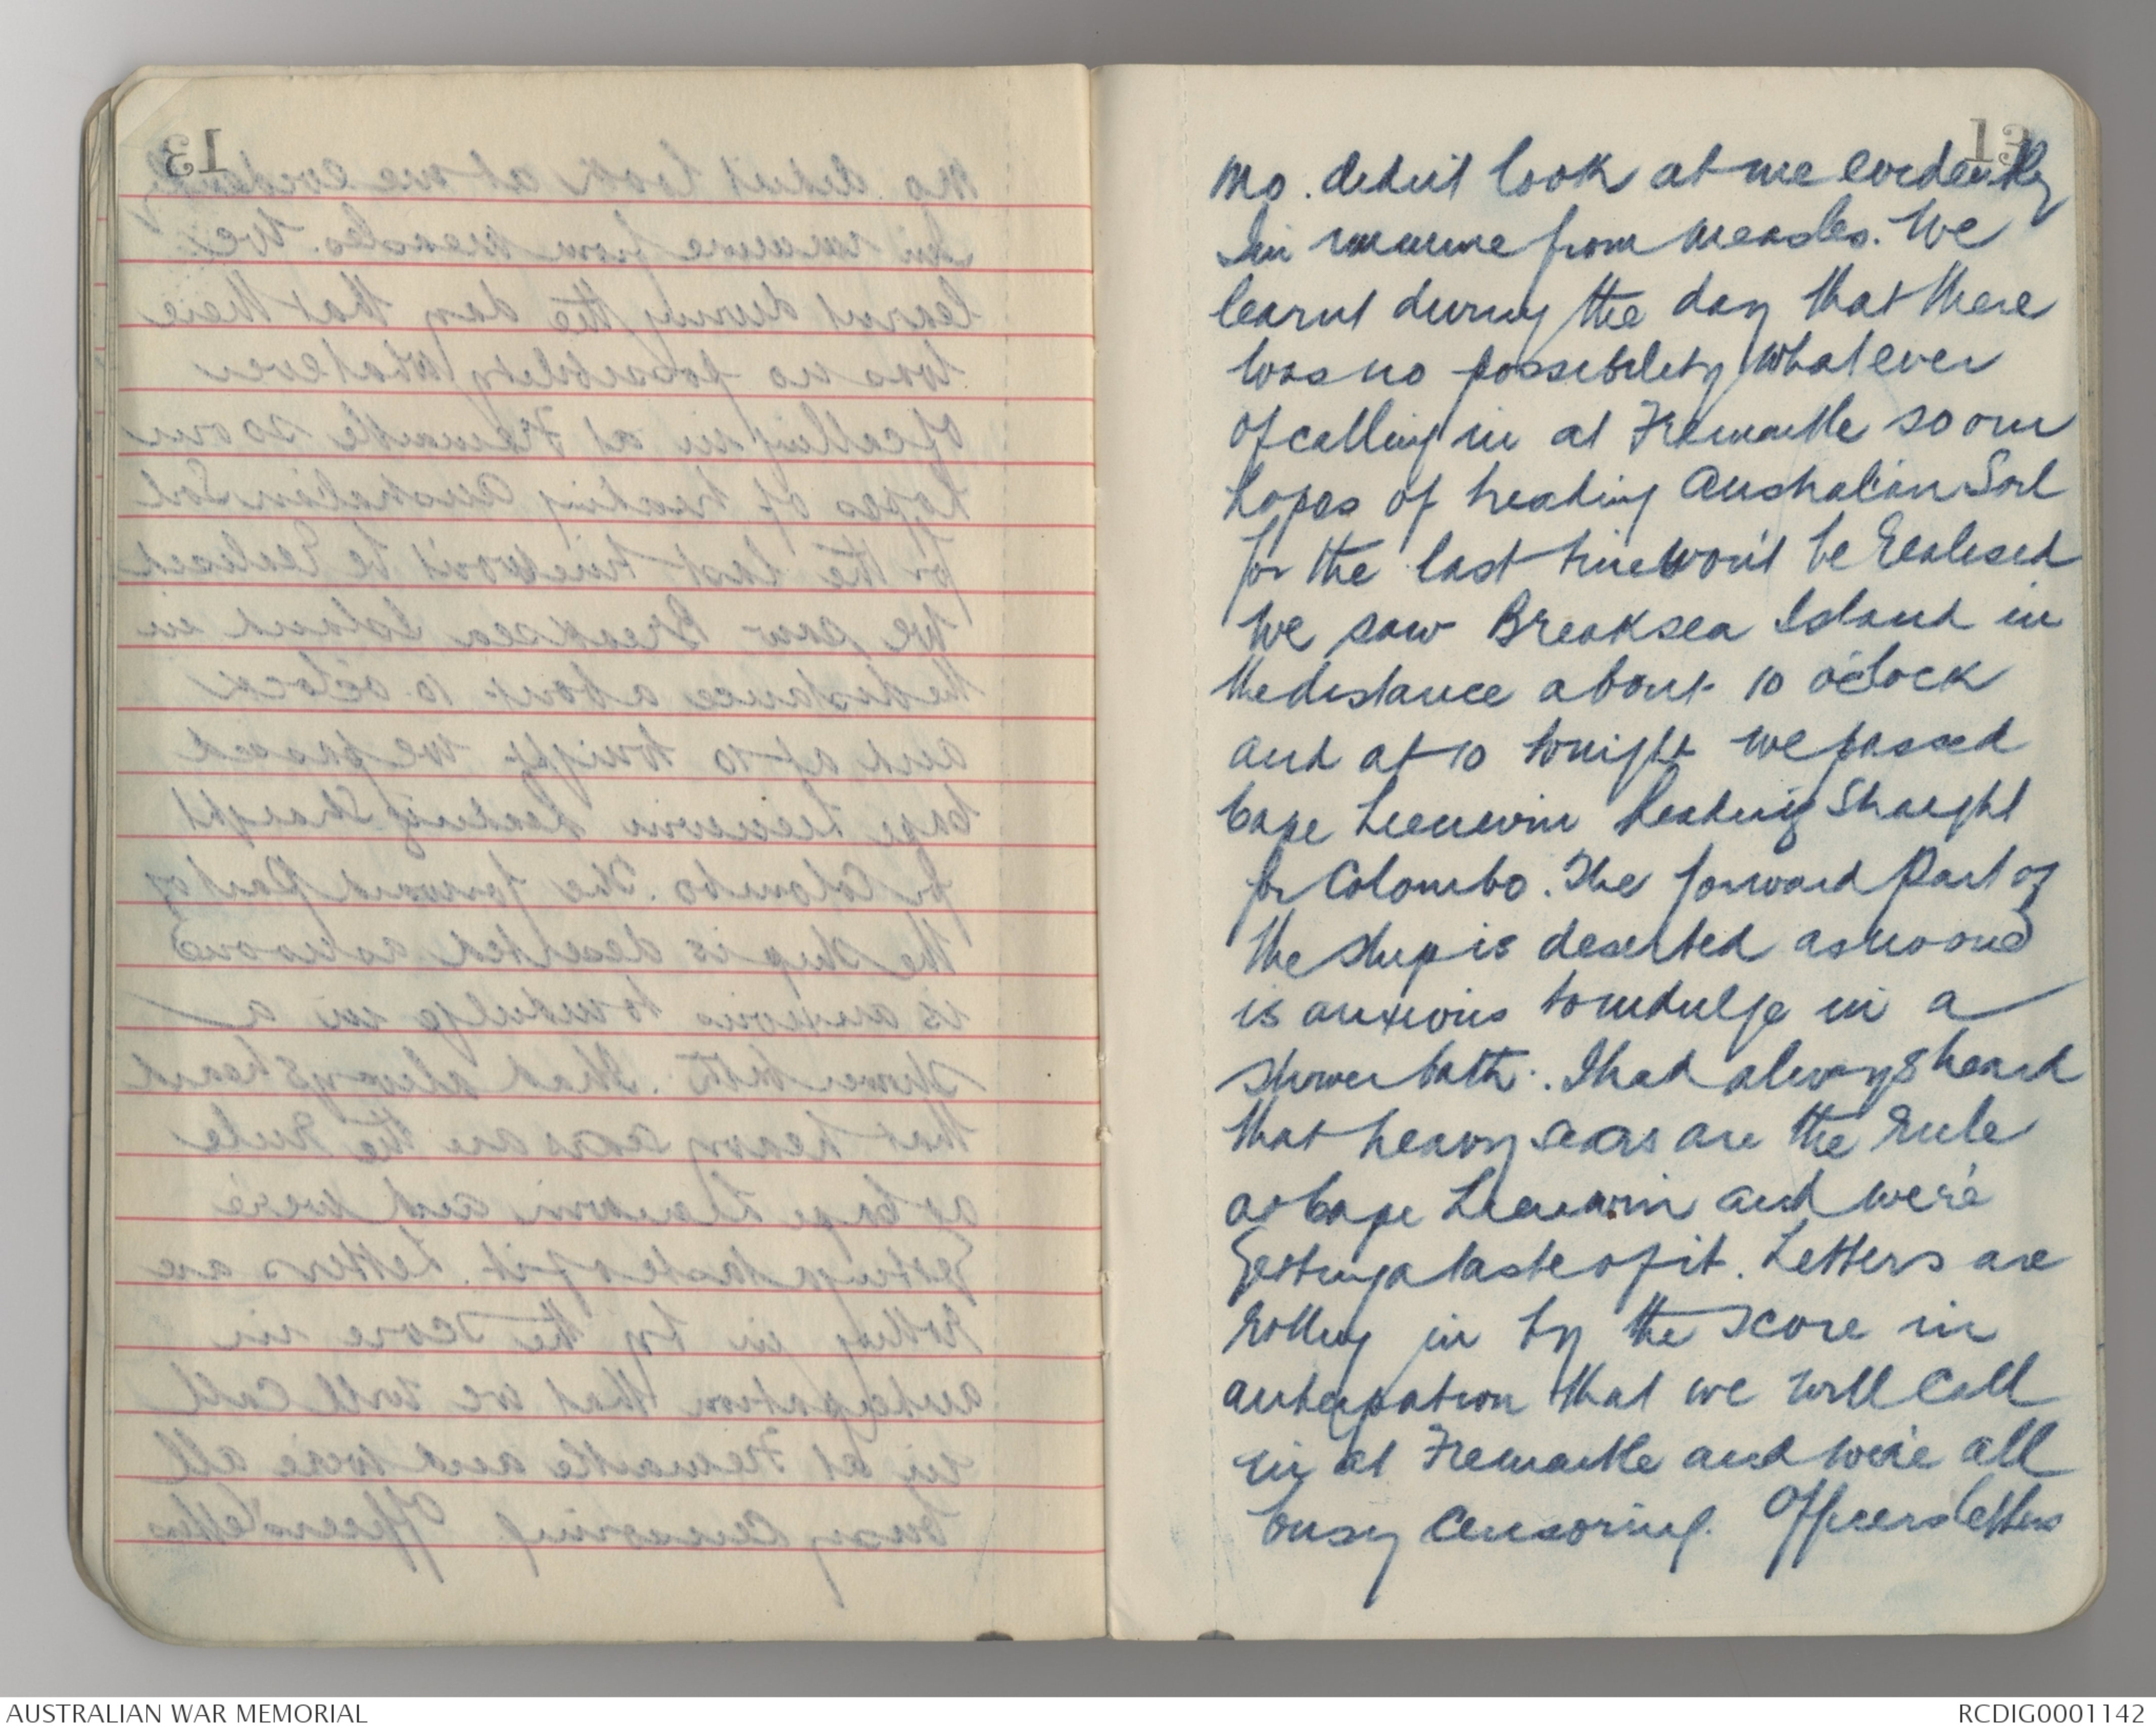 13
Mo. didn't look at me evidently
I'm immune from measles. We
learnt during the day that there
was no possibility whatever
of calling in at Fremantle so our
hopes of treading Australian Soil
for the last time won't be realised
We saw Breaksea Island in
the distance about 10 o'clock
and at 10 tonight we passed
Cape Leeuwin heading straight
for Colombo. The forward part of
the ship is deserted as no one
is anxious to indulge in a
shower bath. I had always heard
that heavy seas are the rule
at Cape Leeuwin and we're
getting a taste of it. Letters are
rolling in by the score in
anticipation that we will call
in at Fremantle and we're all
busy censoring. Officers letters
AUSTRALIAN WAR MEMORIAL
RCDIG0001142